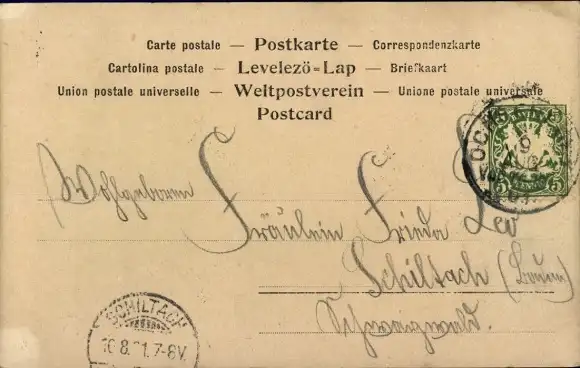 Carte postale — Postkarte — Correspondenzkarte
Cartolina postale — Levelezö=Lap — Briefkaart
Union postale universelle — Weltpostverein — Unione postale universale
Postcard
5 5
9
AUG
Wohlgeboren
Fräulein Frieda Leo
Schiltach (Baden)
Schwarzwald.
SCHILTACH
10.8. 1.7-8V.